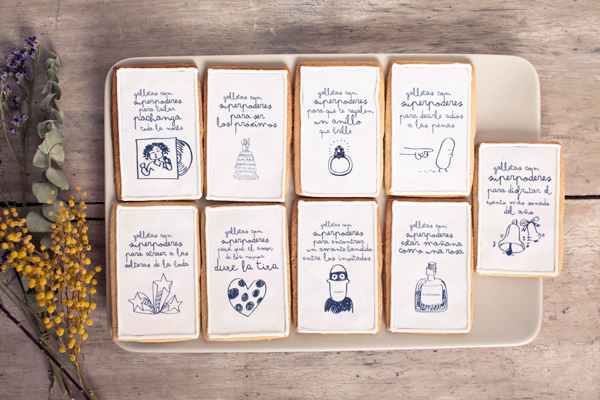 galletas con
superpoderes
para bailar
pachanga
toda la noche
galletas con
superpoderes
para ser
los próximos
galletas con
superpoderes
para que te regalen
un anillo
que brille
galletas con
superpoderes
para decirle adiós
a las penas
galletas con
superpoderes
para disfrutar el
evento más sonado
del año
galletas con
superpoderes
para atraer a las
solteras de la boda
galletas con
superpoderes
para que el amor
de los novios
dure la tira
galletas con
superpoderes
para encontrar
un amante bandido
entre los invitados
galletas con
superpoderes
estar mañana
como una rosa